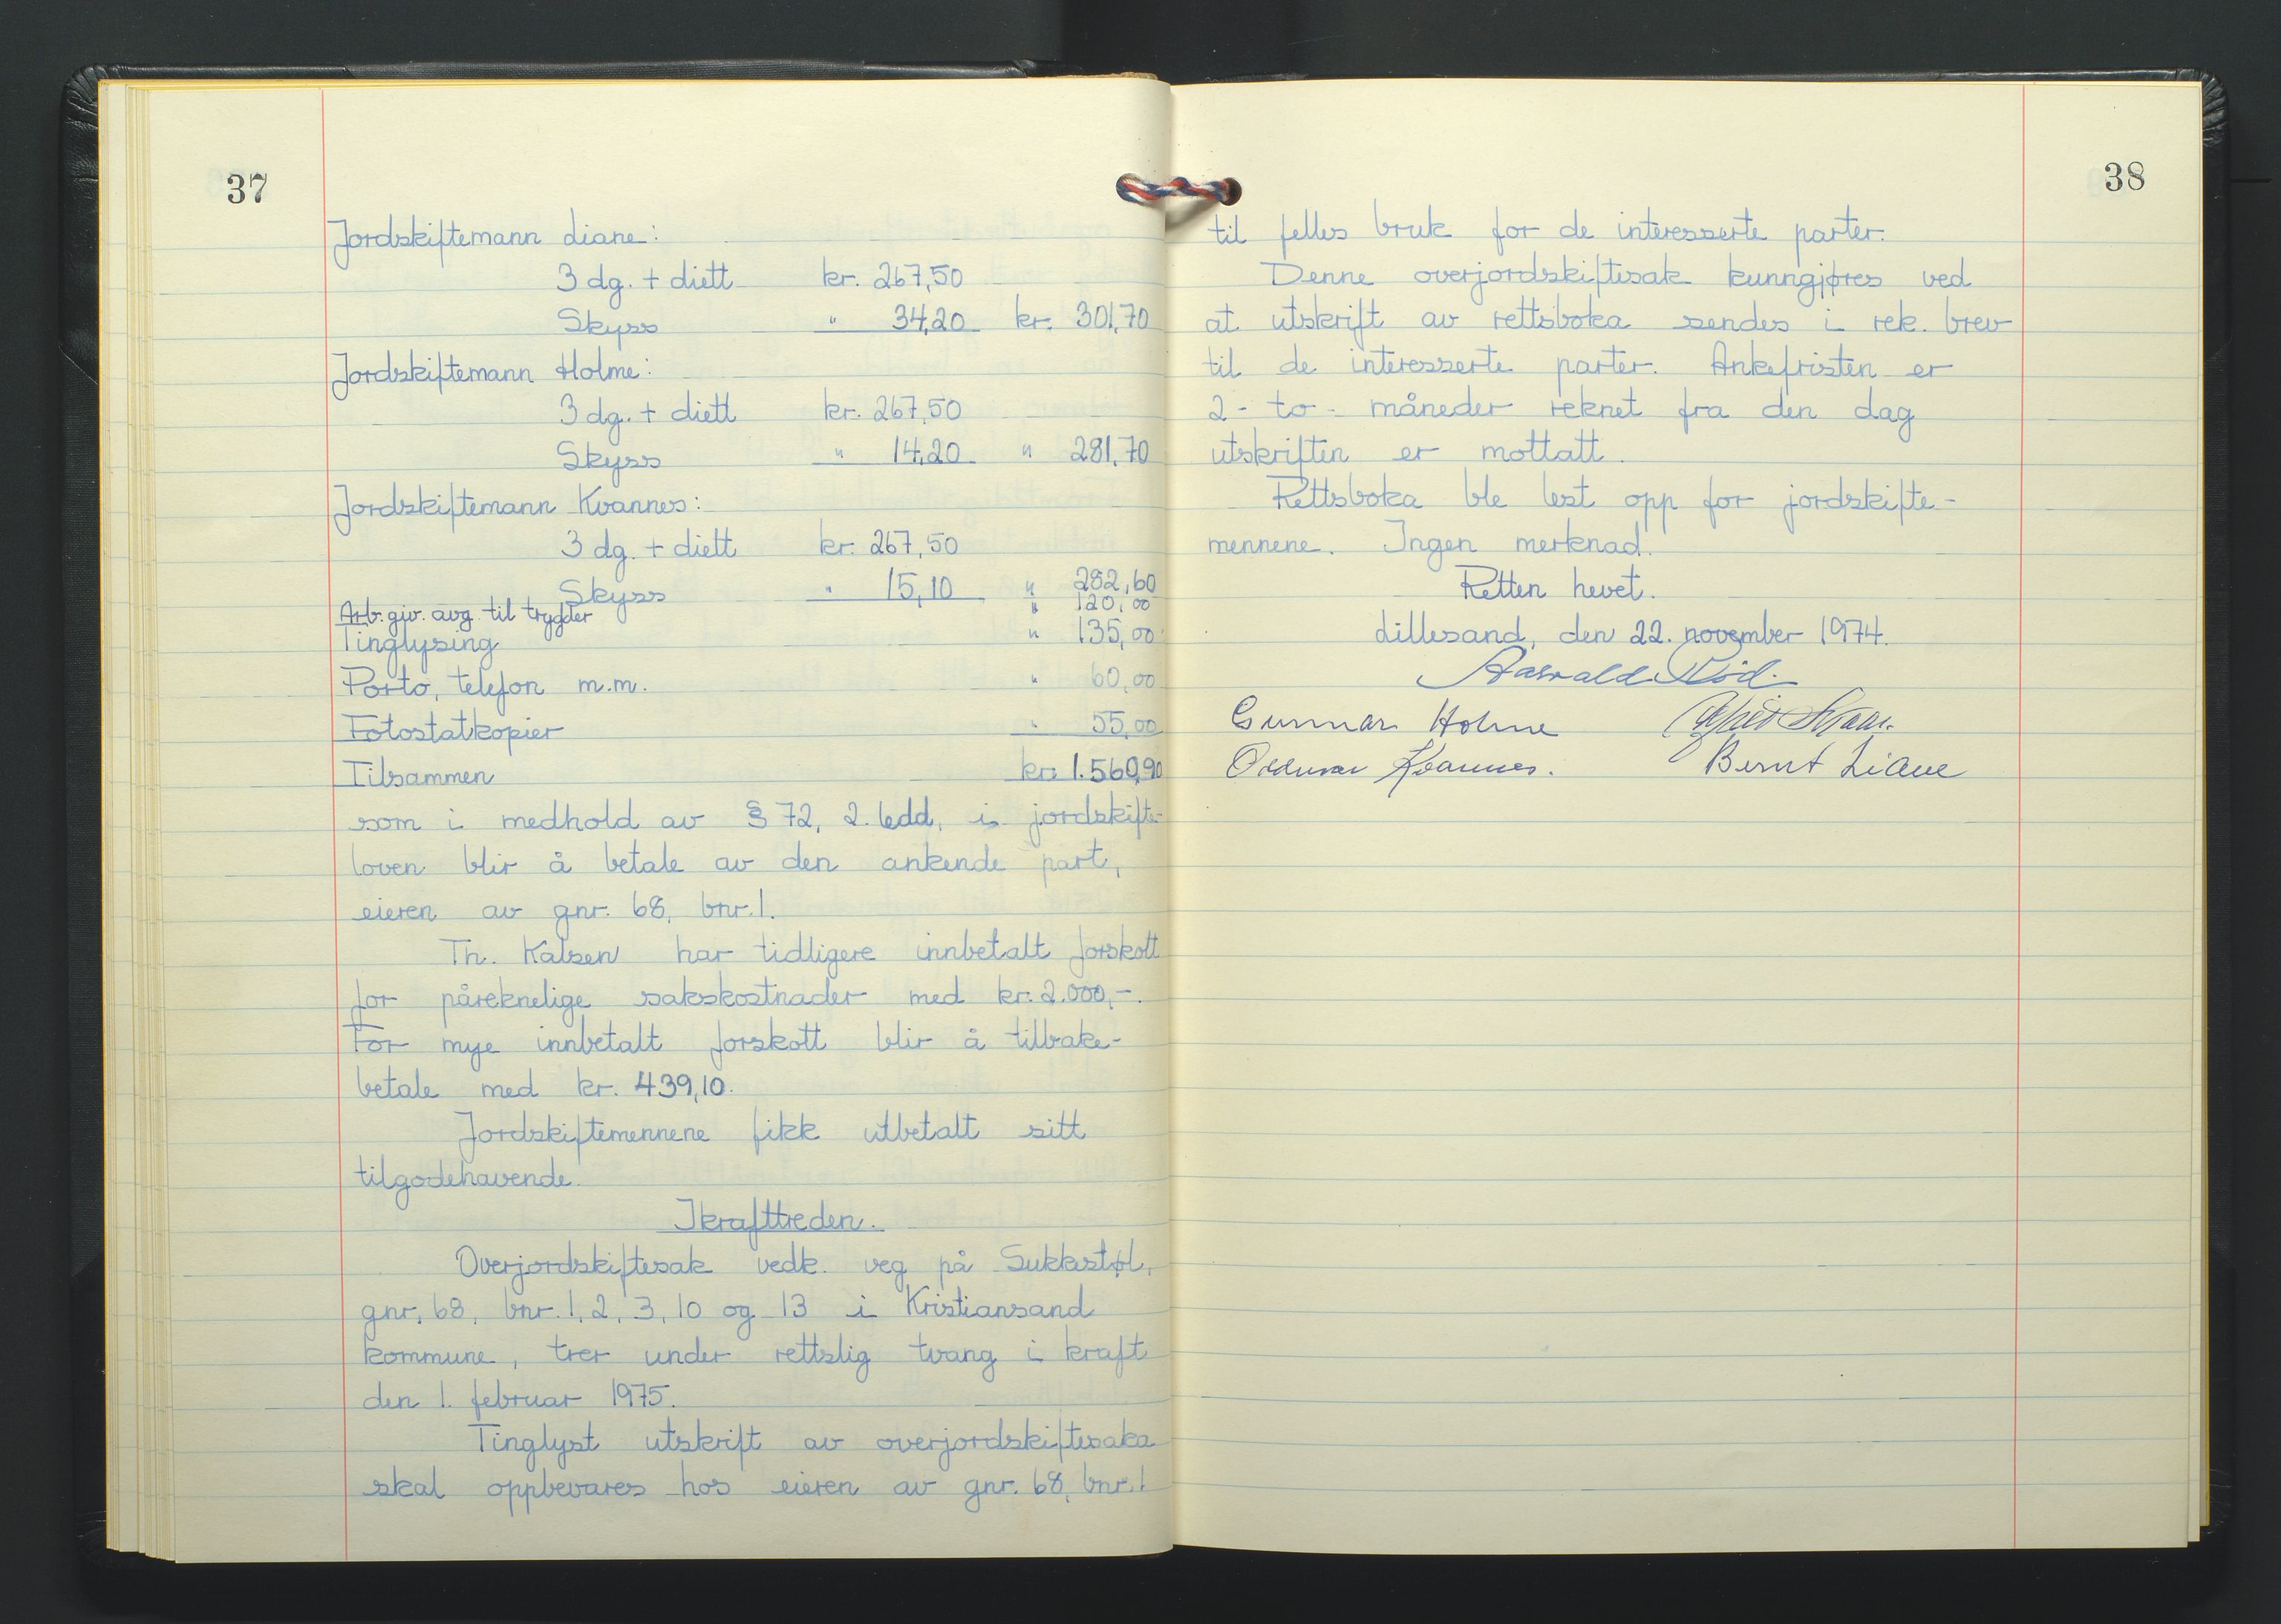 37
Jordskiftemann Liane:
3 dg. + diett kr. 267,50
Skyss " 34,20 kr. 301,70
Jordskiftemann Holme:
3 dg. + diett kr. 267,50
Skyss " 14,20 " 281,70
Jordskiftemann Kvannes:
3 dg. + diett kr. 267,50
Skyss " 15,10 " 282,60
Arb.giv. avg. til trygder " 120,00
Tinglysing " 135,00
Porto, telefon m.m. " 60,00
Fotostatkopier " 55,00
Tilsammen kr. 1.560,90
som i medhold av § 72, 2. ledd, i jordskifte-
loven blir å betale av den ankende part,
eieren av gnr. 68, bnr. 1.
Th. Kalsen har tidligere innbetalt forskott
for påreknelige sakskostnader med kr. 2.000,-.
For mye innbetalt forskott blir å tilbake-
betale med kr. 439,10.
Jordskiftemennene fikk utbetalt sitt
tilgodehavende.
Ikrafttreden.
Overjordskiftesak vedk. veg på Sukkestøl,
gnr. 68, bnr. 1, 2, 3, 10 og 13 i Kristiansand
kommune, trer under rettslig tvang i kraft
den 1. februar 1975.
Tinglyst utskrift av overjordskiftesaka
skal oppbevares hos eieren av gnr. 68, bnr. 1
38
til felles bruk for de interesserte parter.
Denne overjordskiftesak kunngjøres ved
at utskrift av rettsboka sendes i rek. brev
til de interesserte parter. Ankefristen er
2 - to - måneder reknet fra den dag
utskriften er mottatt.
Rettsboka ble lest opp for jordskifte-
mennene. Ingen merknad.
Retten hevet.
Lillesand, den 22. november 1974.
Gunnar Holme
Oddvar Kvannes. Bernt Liane